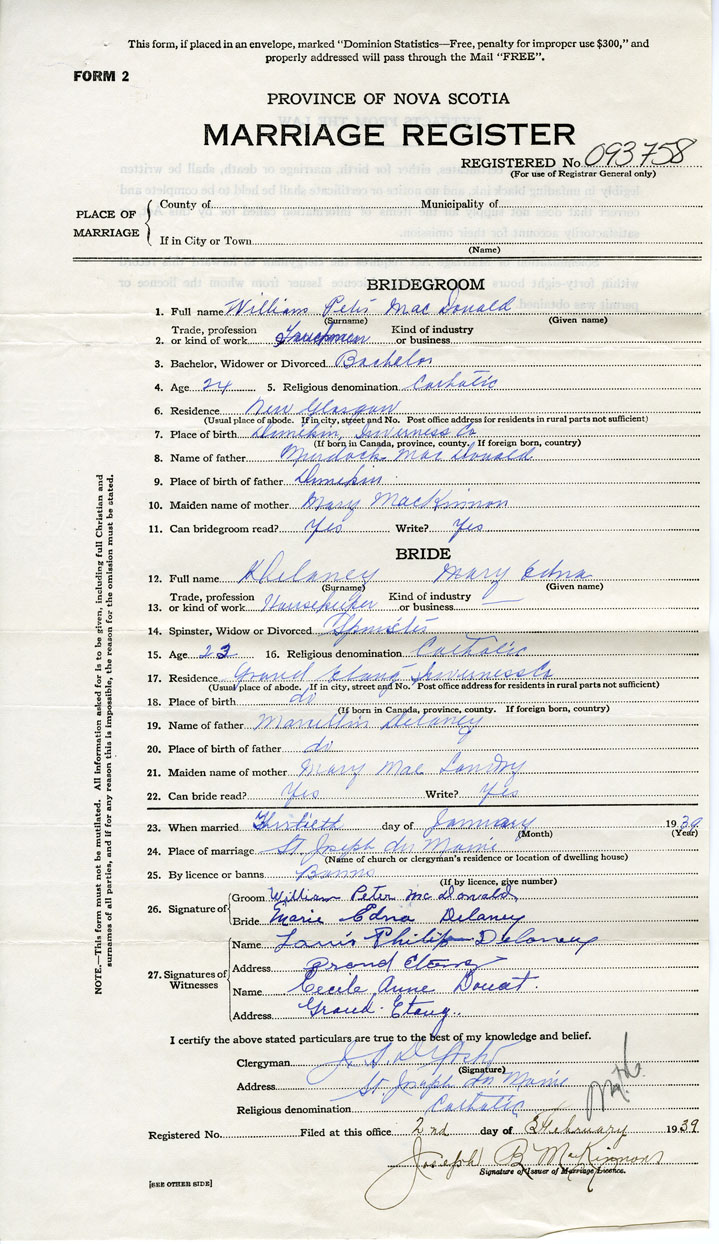 This form, if placed in an envelope, marked "Dominion Statistics—Free, penalty for improper use $300," and
properly addressed will pass through the Mail "FREE".
FORM 2
PROVINCE OF NOVA SCOTIA
MARRIAGE REGISTER
REGISTERED No 093758
(For use of Registrar General only)
PLACE OF MARRIAGE
County of Municipality of
If in City or Town
(Name)
BRIDEGROOM
1. Full name William Peter MacDonald
(Surname) (Given name)
Trade, profession Kind of industry
2. or kind of work or business
3. Bachelor, Widower or Divorced Bachelor
4. Age 24 5. Religious denomination Catholic
6. Residence New Glasgow
(Usual place of abode. If in city, street and No. Post office address for residents in rural parts not sufficient)
7. Place of birth Inverness Co
(If born in Canada, province, county. If foreign born, country)
8. Name of father Murdock MacDonald
9. Place of birth of father
10. Maiden name of mother Mary MacKinnon
11. Can bridegroom read? Yes Write? Yes
BRIDE
12. Full name Delaney Mary Edna
(Surname) (Given name)
Trade, profession Kind of industry
13. or kind of work Housekeeper or business —
14. Spinster, Widow or Divorced Spinster
15. Age 23 16. Religious denomination Catholic
17. Residence Grand Etang Inverness Co
(Usual place of abode. If in city, street and No. Post office address for residents in rural parts not sufficient)
18. Place of birth do
(If born in Canada, province, county. If foreign born, country)
19. Name of father Marcellin Delaney
20. Place of birth of father do
21. Maiden name of mother Mary Mae Landry
22. Can bride read? Yes Write? Yes
23. When married Thirtieth day of January 1939
(Month) (Year)
24. Place of marriage St Joseph du Moine
(Name of church or clergyman's residence or location of dwelling house)
25. By licence or banns Banns
(If by licence, give number)
26. Signature of
Groom William Peter McDonald
Bride Marie Edna Delaney
27. Signatures of Witnesses
Name Louis Philip Delaney
Address Grand Etang
Name Cecile Anne Doucet.
Address Grand-Etang.
I certify the above stated particulars are true to the best of my knowledge and belief.
Clergyman
(Signature)
Address St Joseph du Moine
Religious denomination Catholic
Registered No. Filed at this office 2nd day of February 1939
Joseph B MacKinnon
Signature of Issuer of Marriage Licence.
[SEE OTHER SIDE]
NOTE.—This form must not be mutilated. All information asked for is to be given, including full Christian and
surnames of all parties, and if for any reason this is impossible, the reason for the omission must be stated.